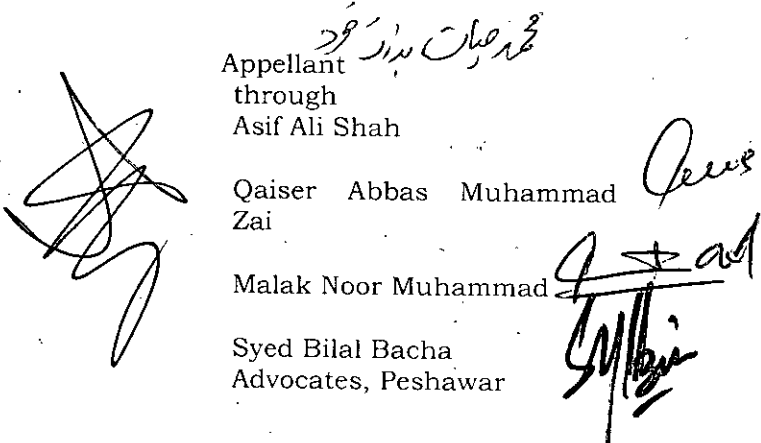 محمد حیات
Appellant
through
Asif Ali Shah
Qaiser Abbas Muhammad
Zai
Malak Noor Muhammad
Syed Bilal Bacha
Advocates, Peshawar